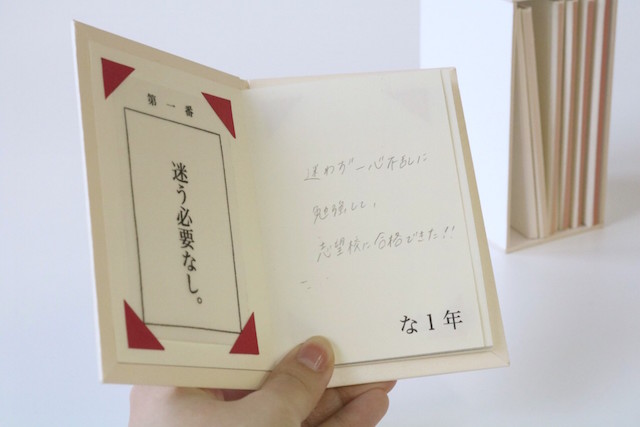 第一番
迷う必要なし。
迷わず一心不乱に
勉強して、
志望校に合格できた!!
な1年